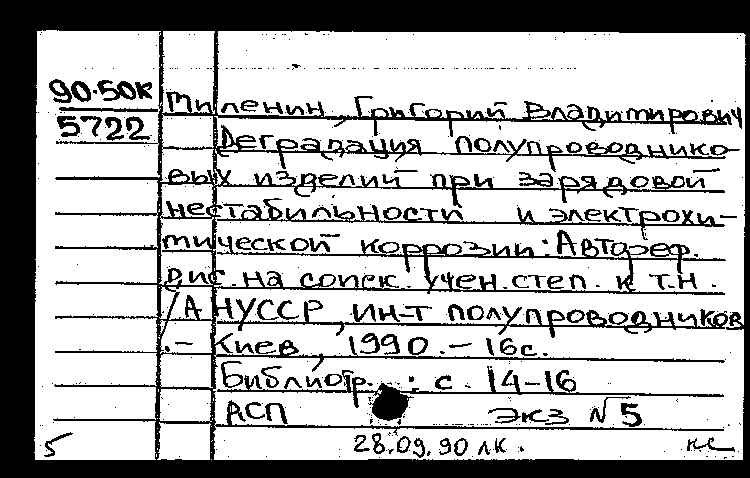 90-50к
5722
Миленин, Григорий Владимирович
Деградация полупроводнико-
вых изделий при зарядовой
нестабильности и электрохи-
мической коррозии: Автореф.
дис. на соиск. учен. степ. к. т. н.
/АН УССР, ин-т полупроводников
.- Киев, 1990. - 16с.
Библиогр.: с. 14-16
АСП экз № 5
5 28.09.90 лк. кс